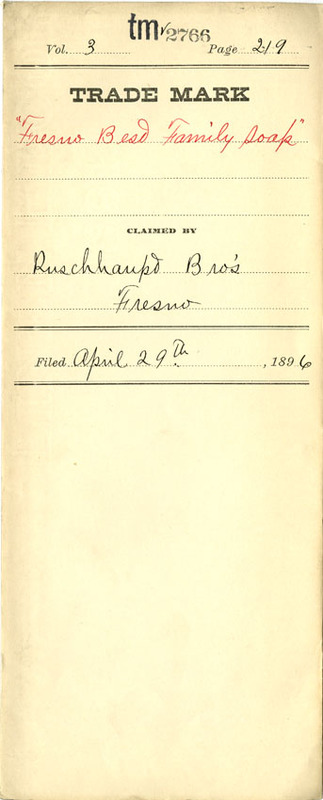 tm 2766
Vol. 3 Page 219
TRADE MARK
"Fresno Best Family Soap"
CLAIMED BY
Ruschhaupt Bro's
Fresno
Filed April 29th, 1896